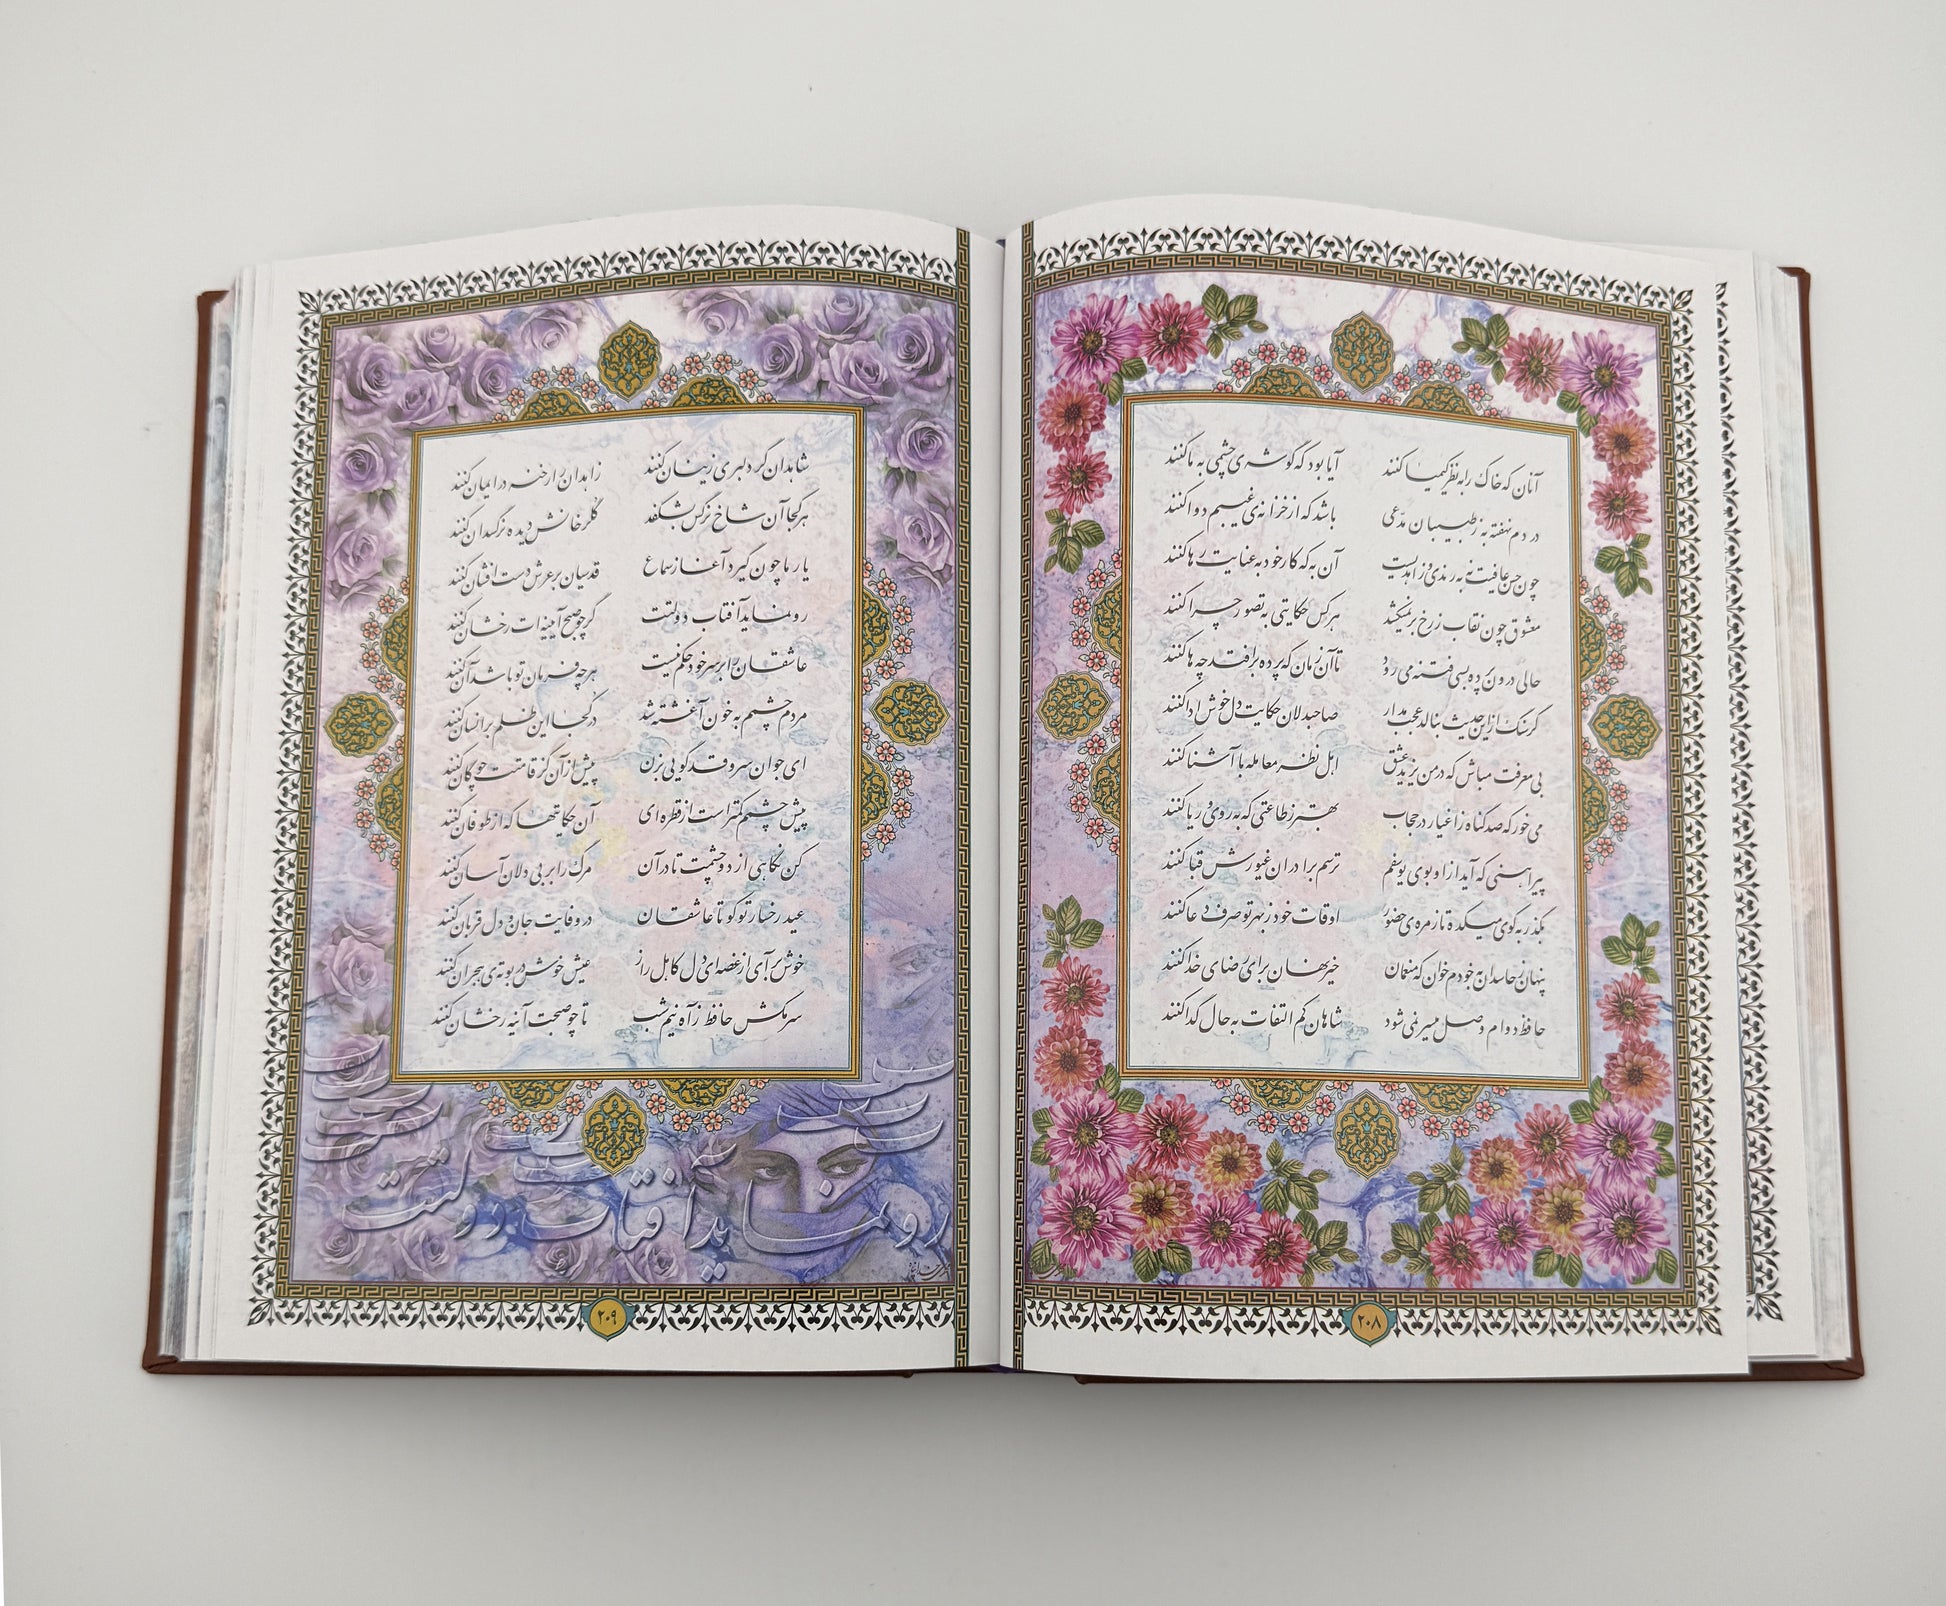 آنان که خاک را به نظر کیمیا کنند آیا بود که گوشه‌ی چشمی به ما کنند
دردم نهفته به ز طبیبان مدّعی باشد که از خزانه‌ی غیبم دوا کنند
چون حسن عافیت نه به رندی و زاهدیست آن به که کار خود به عنایت رها کنند
معشوق چون نقاب ز رخ بر نمیکشد هر کس حکایتی به تصور چرا کنند
حالی درون پرده بسی فتنه می رود تا آن زمان که پرده برافتد چه ها کنند
گر سنگ از این حدیث بنالد عجب مدار صاحبدلان حکایت دل خوش ادا کنند
بی معرفت مباش که در من یزید عشق اهل نظر معامله با آشنا کنند
می خور که صد گناه ز اغیار در حجاب بهتر ز طاعتی که به روی و ریا کنند
پیراهنی که آید از او بوی یوسفم ترسم برادران غیورش قبا کنند
بگذر به کوی میکده تا زمره‌ی حضور اوقات خود ز بهر تو صرف دعا کنند
پنهان ز حاسدان به خودم خوان که منعمان خیر نهان برای رضای خدا کنند
حافظ دوام وصل میسر نمی شود شاهان کم التفات به حال گدا کنند
۲۰۸
شاهدان گر دلبری زینسان کنند زاهدان را رخنه در ایمان کنند
هر کجا آن شاخ نرگس بشکفد گلرخانش دیده نرگسدان کنند
یار ما چون گیرد آغاز سماع قدسیان بر عرش دست افشان کنند
رو نماید آفتاب دولتت گر چو صبح آیینه ات رخشان کنند
عاشقان را بر سر خود حکم نیست هر چه فرمان تو باشد آن کنند
مردم چشمم به خون آغشته شد در کجا این ظلم بر انسان کنند
ای جوان سرو قد گویی بزن پیش از آن کز قامتت چوگان کنند
پیش چشمم کمتر است از قطره ای آن حکایتها که از طوفان کنند
کن نگاهی از دو چشمت تا در آن مرگ را بر بی دلان آسان کنند
عید رخسار تو کو تا عاشقان در وفایت جان و دل قربان کنند
خوش برآی از غصه ای دل کاهل راز عیش خوش در بوته‌ی هجران کنند
سر مکش حافظ ز آه نیم شب تا چو صبحت آینه رخشان کنند
رو نماید آفتاب دولتت
۲۰۹